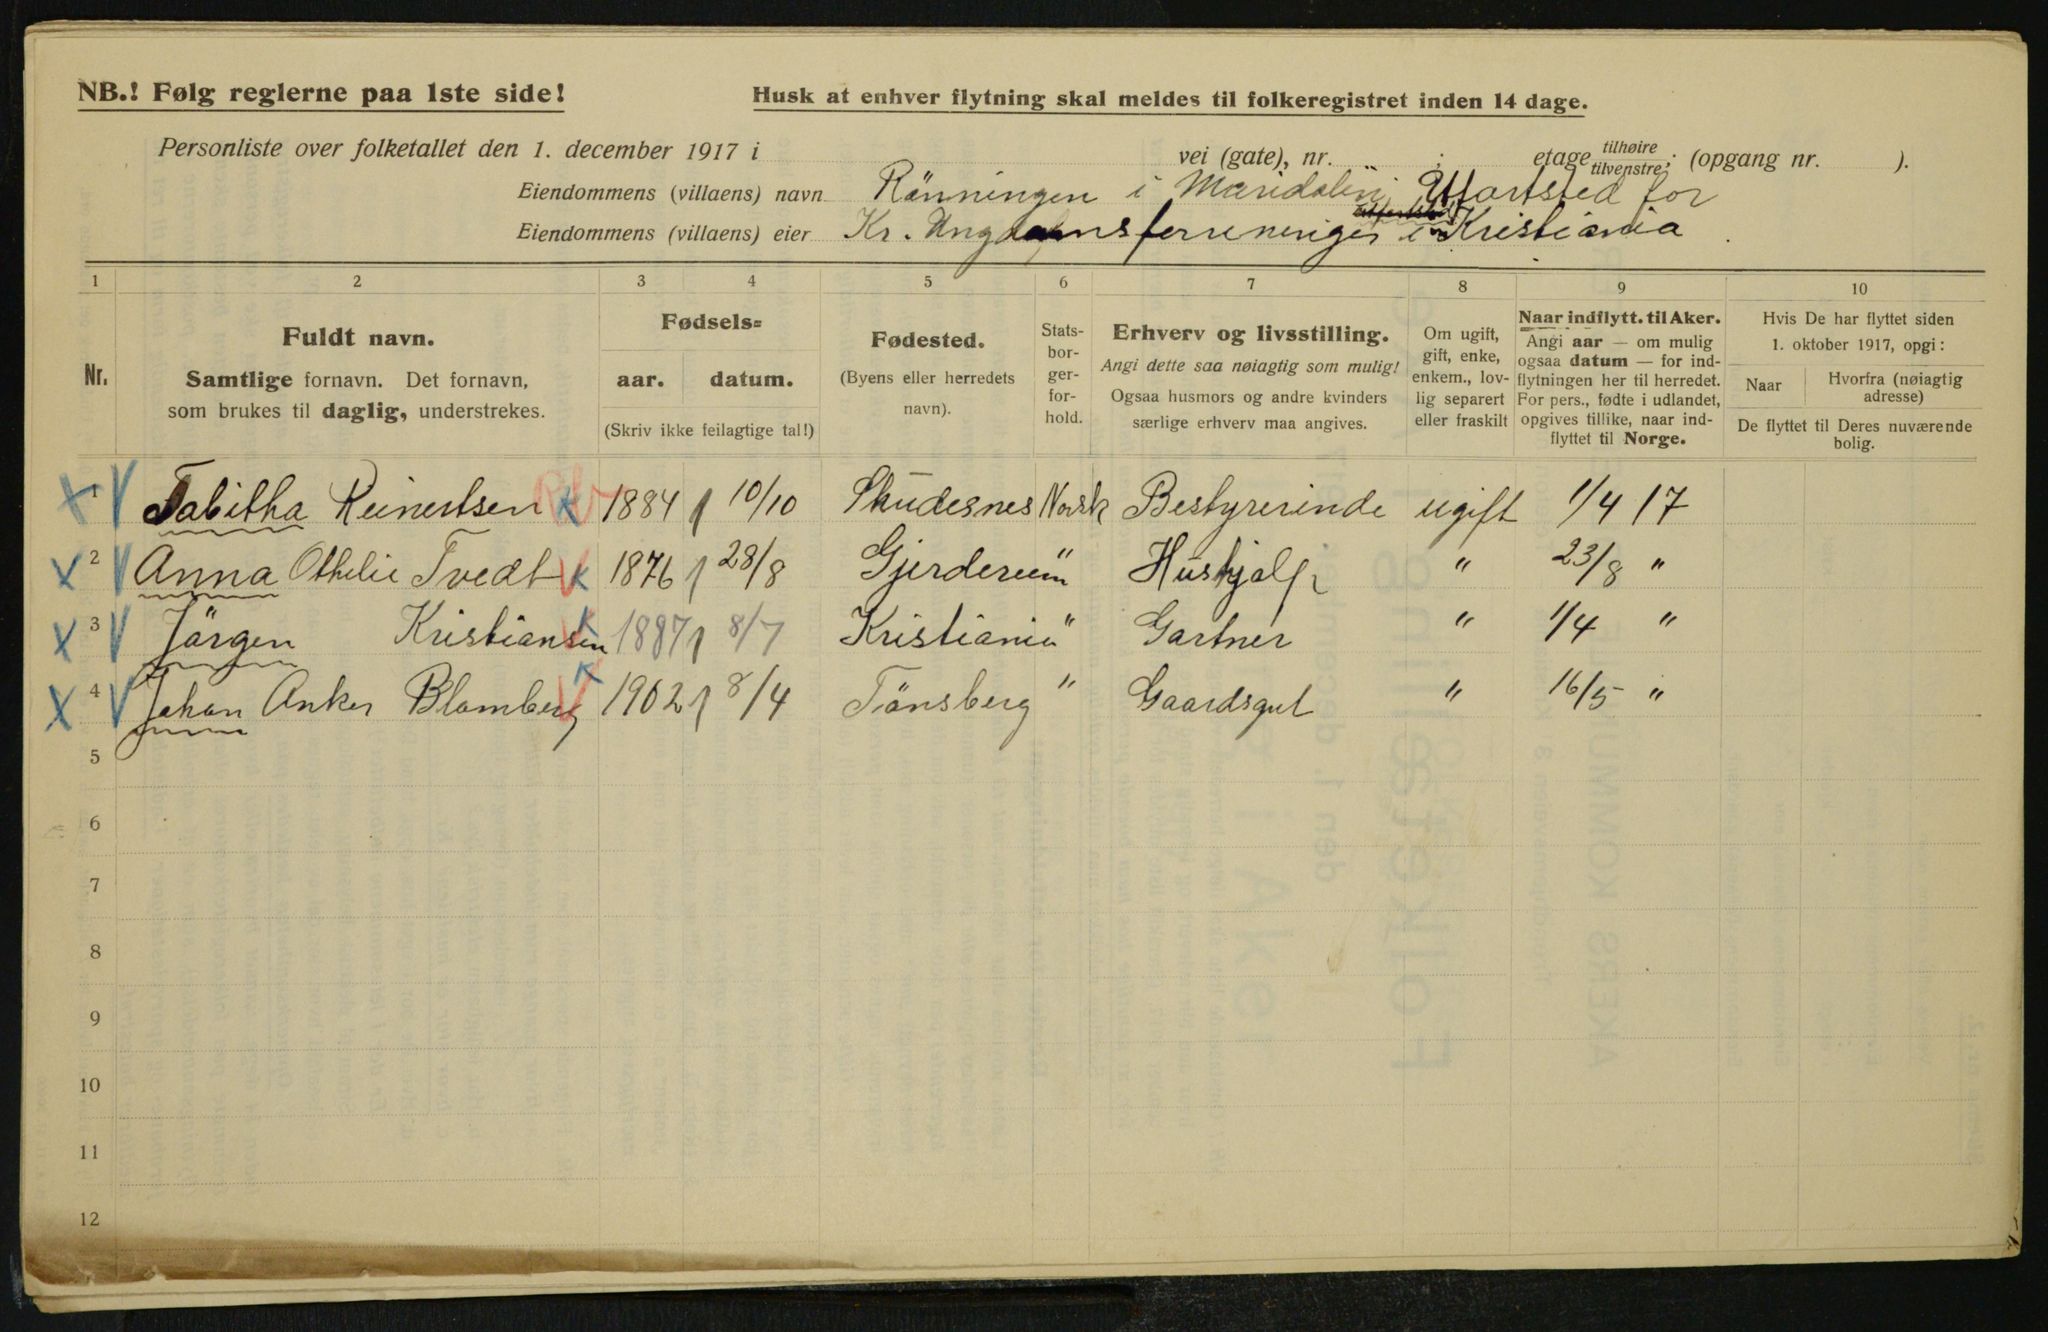 NB.! Følg reglerne paa 1ste side!
Husk at enhver flytning skal meldes til folkeregistret inden 14 dage.
Personliste over folketallet den 1. december 1917 i vei (gate), nr. ; etage tilhøire tilvenstre; (opgang nr. ).
Eiendommens (villaens) navn Rönningen i Maridalen Utfartsted for
Eiendommens (villaens) eier Kr. Ungdomsforreninger i Kristiania
1 2 3 4 5 6 7 8 9 10
Nr.
Fuldt navn.
Samtlige fornavn. Det fornavn,
som brukes til daglig, understrekes.
Fødsels=
aar. datum.
(Skriv ikke feilagtige tal!)
Fødested.
(Byens eller herredets
navn).
Stats-
bor-
ger-
for-
hold.
Erhverv og livsstilling.
Angi dette saa nøiagtig som mulig!
Ogsaa husmors og andre kvinders
særlige erhverv maa angives.
Om ugift,
gift, enke,
enkem., lov-
lig separert
eller fraskilt
Naar indflytt. til Aker.
Angi aar — om mulig
ogsaa datum — for ind-
flytningen her til herredet.
For pers., fødte i udlandet,
opgives tillike, naar ind-
flyttet til Norge.
Hvis De har flyttet siden
1. oktober 1917, opgi:
Naar
Hvorfra (nøiagtig
adresse)
De flyttet til Deres nuværende
bolig.
X 1 V Tabitha Reinertsen K 1884 10/10 Skudesnes Norsk Bestyrerinde ugift 1/4 17
X 2 V Anna Othelie Tvedt K 1876 28/8 Gjerderum " Hushjalp " 23/8 "
X 3 V Jörgen Kristiansen K 1887 8/7 Kristiania " Gartner " 1/4 "
X 4 V Johan Anker Blomberg K 1902 8/4 Tönsberg " Gaardsgut " 16/5 "
5
6
7
8
9
10
11
12